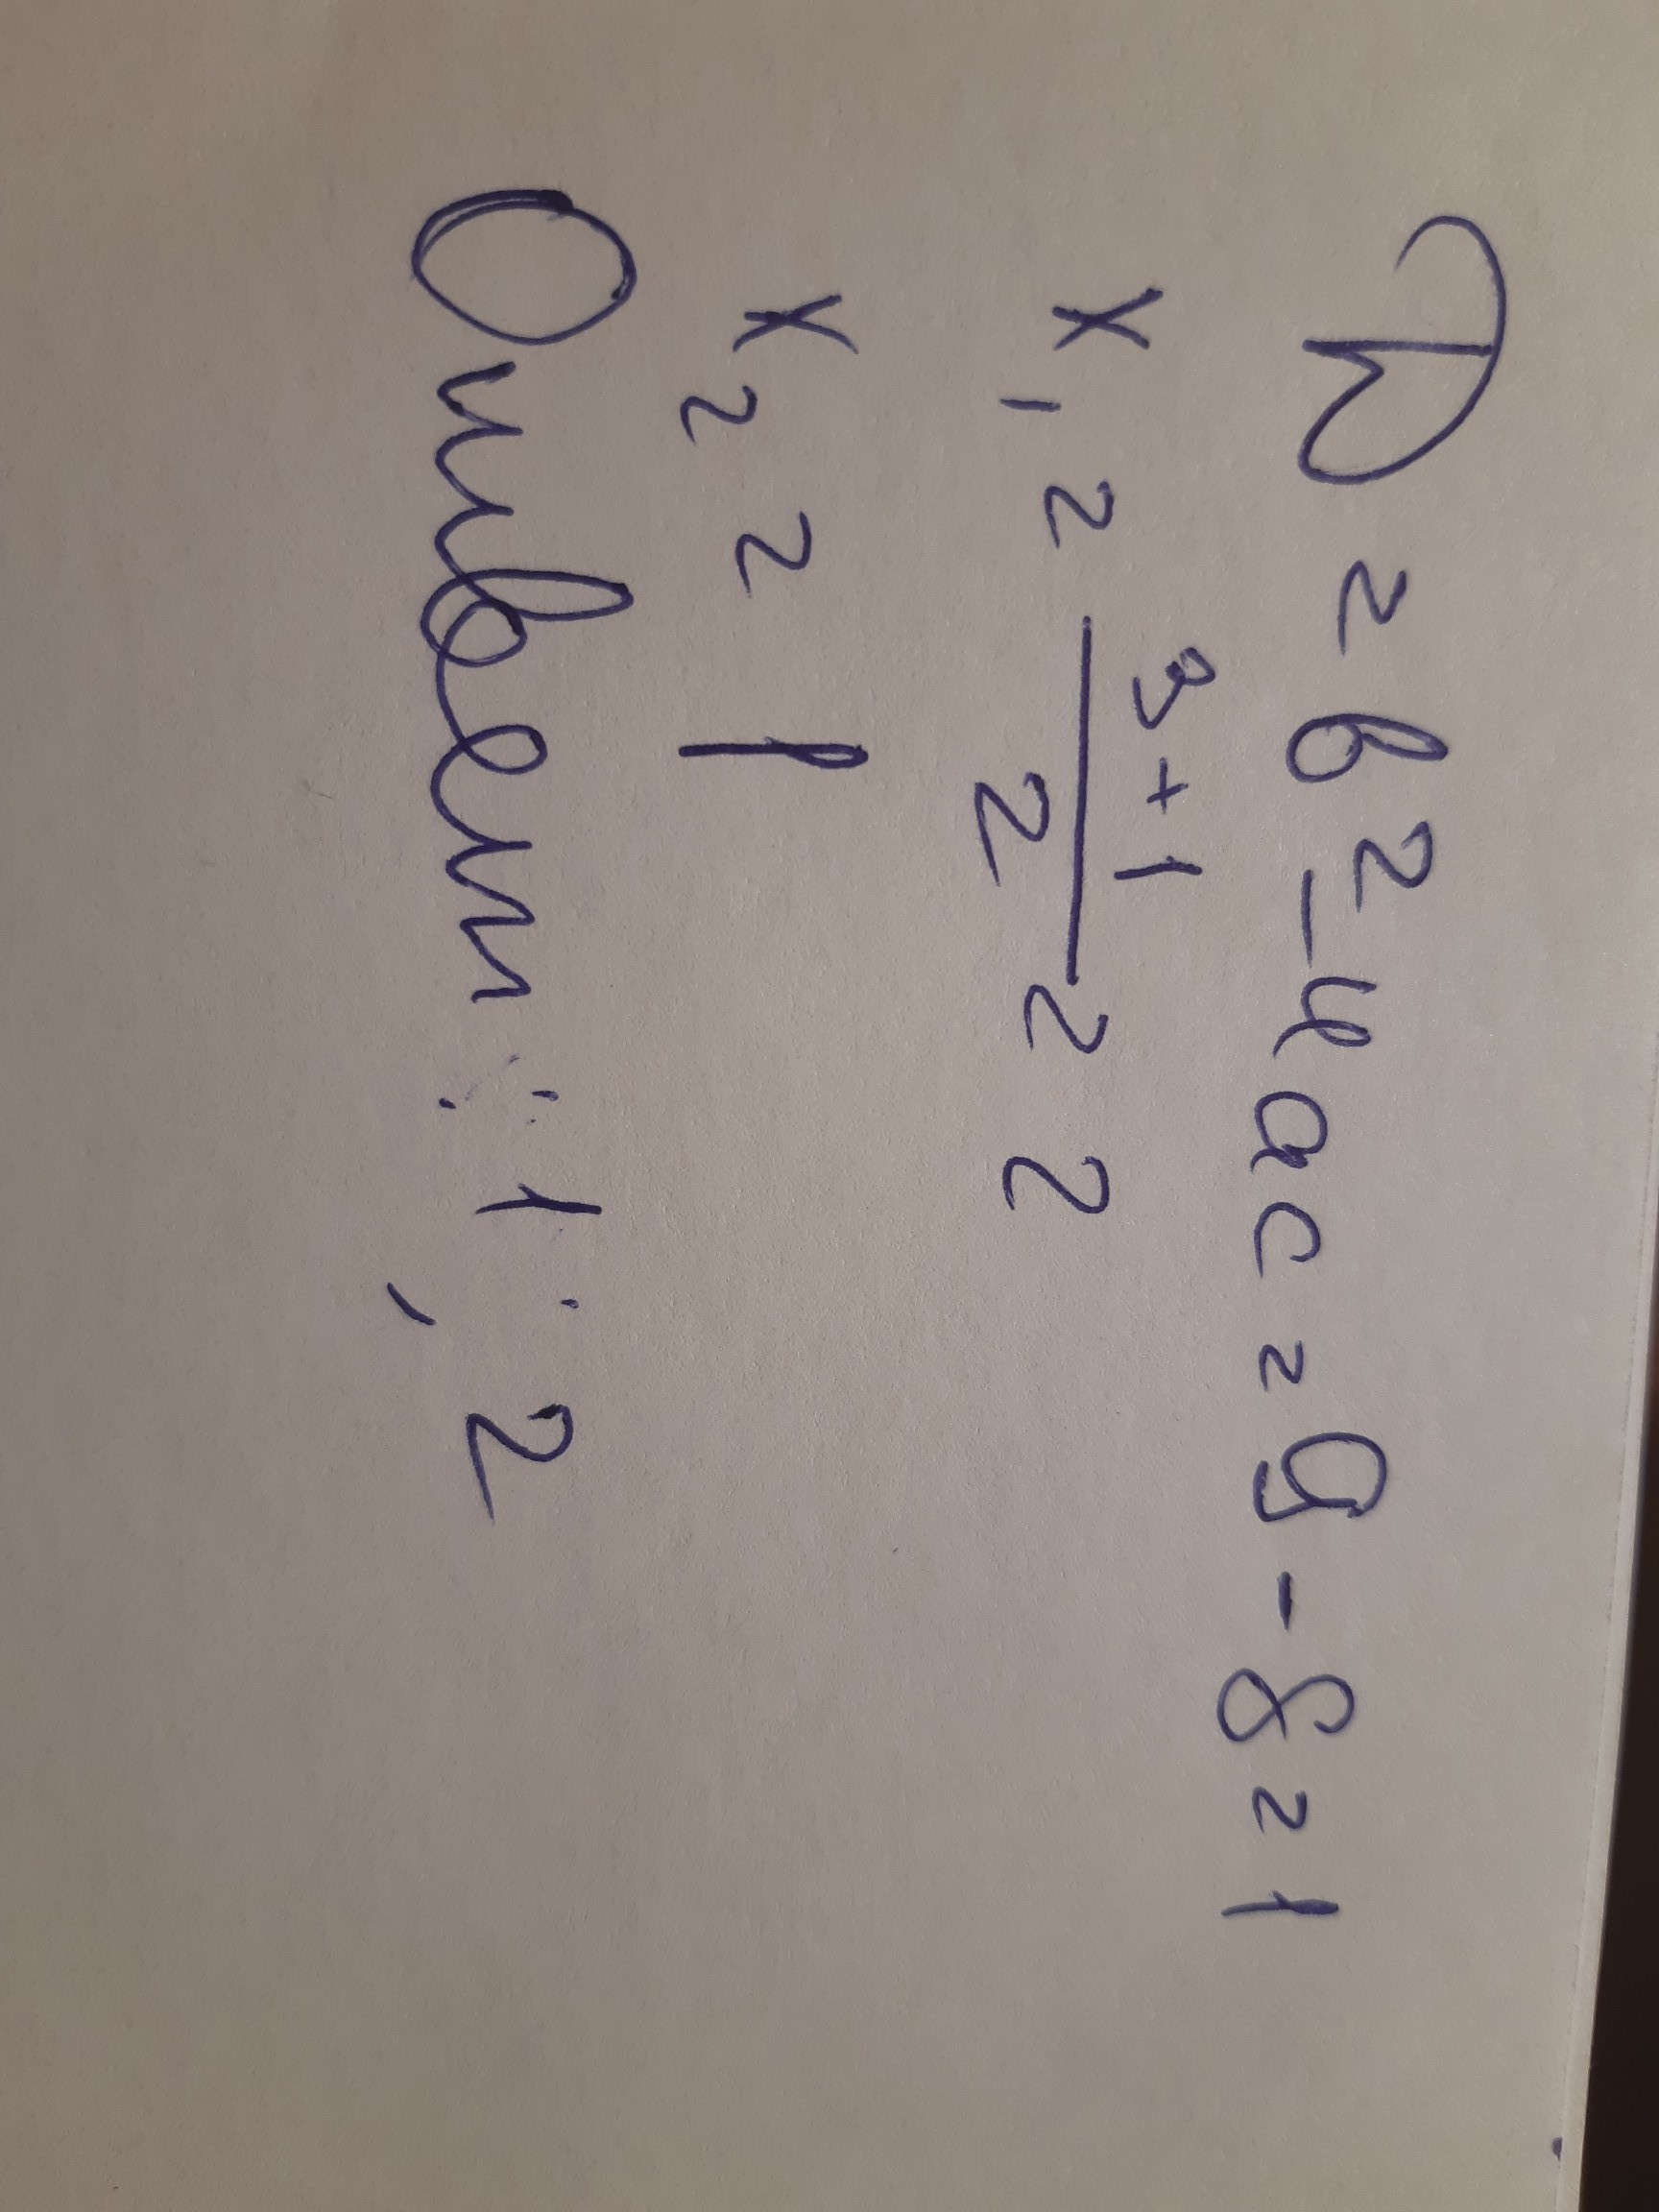 D = b² - 4ac = 9 - 8 = 1
x₁ = (3+1)/2 = 2
x₂ = 1
Ответ: 1, 2